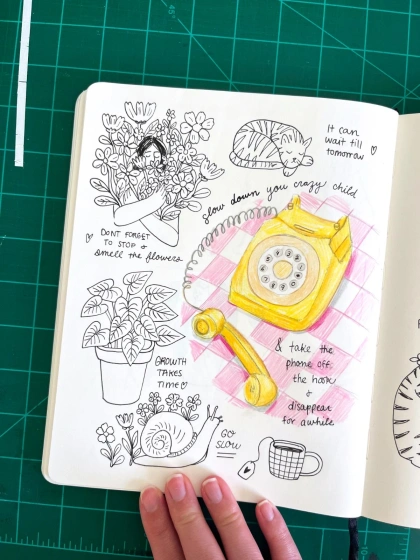 It can
wait till
tomorrow
slow down you crazy child
DONT FORGET
TO STOP &
smell the flowers
& take the
phone off
the hook
&
disappear
for awhile
GROWTH
TAKES
TIME
GO
SLOW